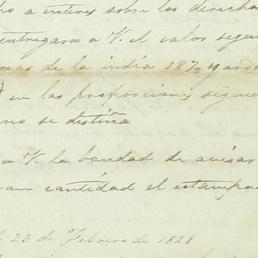 a interes sobre los derechos
entregara a V. el valor segun
de la india 18 1/2 y
en las proporciones siguien
no se distina
a V. la bondad de avisar
cantidad el estampa
23 de Febrero de 1828